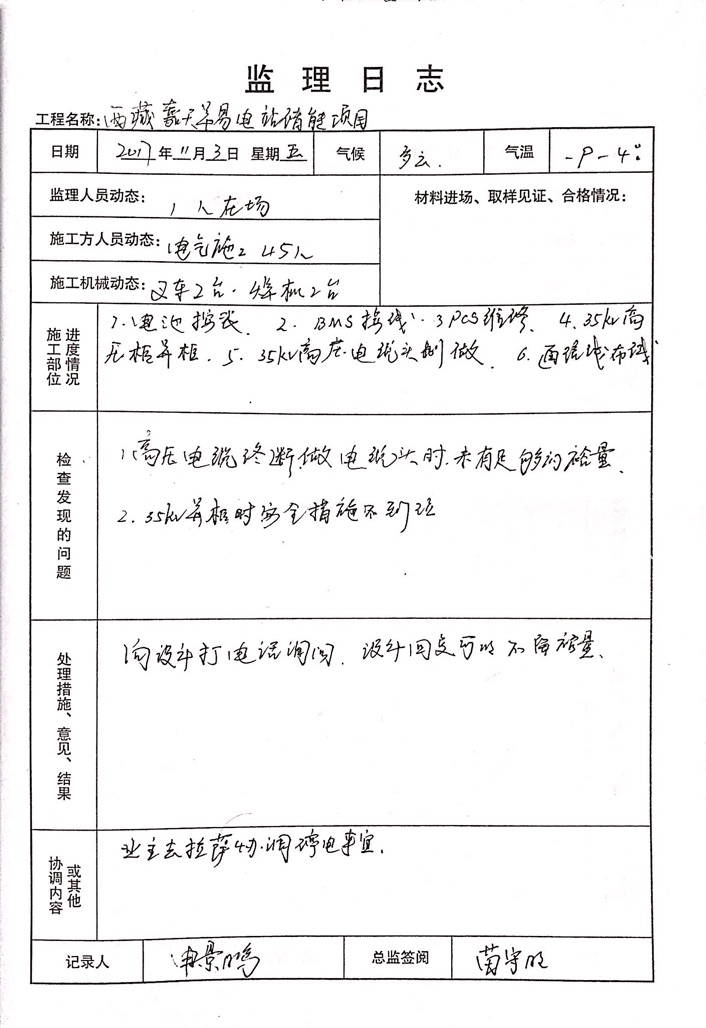 监理日志
工程名称:西藏嘉天昂易电站储能项目
日期 2017年11月3日 星期五 气候 多云. 气温 -9-4°
监理人员动态: 1人在场 材料进场、取样见证、合格情况:
施工方人员动态: 电气施工45人
施工机械动态: 叉车2台.焊机2台
施工部位 进度情况 1.电池接线. 2. BMS接线. 3 PCS维修. 4. 35kv高
压柜并柜. 5. 35kv高压电缆头制做. 6. 通信线布线
检查发现的问题 1.高压电缆终断做电缆头时.未有足够的裕量.
2. 35kv并柜时安全措施不到位
处理措施、意见、结果 向设计打电话询问. 设计回复可以不留裕量.
协调内容 或其他 业主去拉萨协调停电事宜.
记录人 申景鸣 总监签阅 苗守